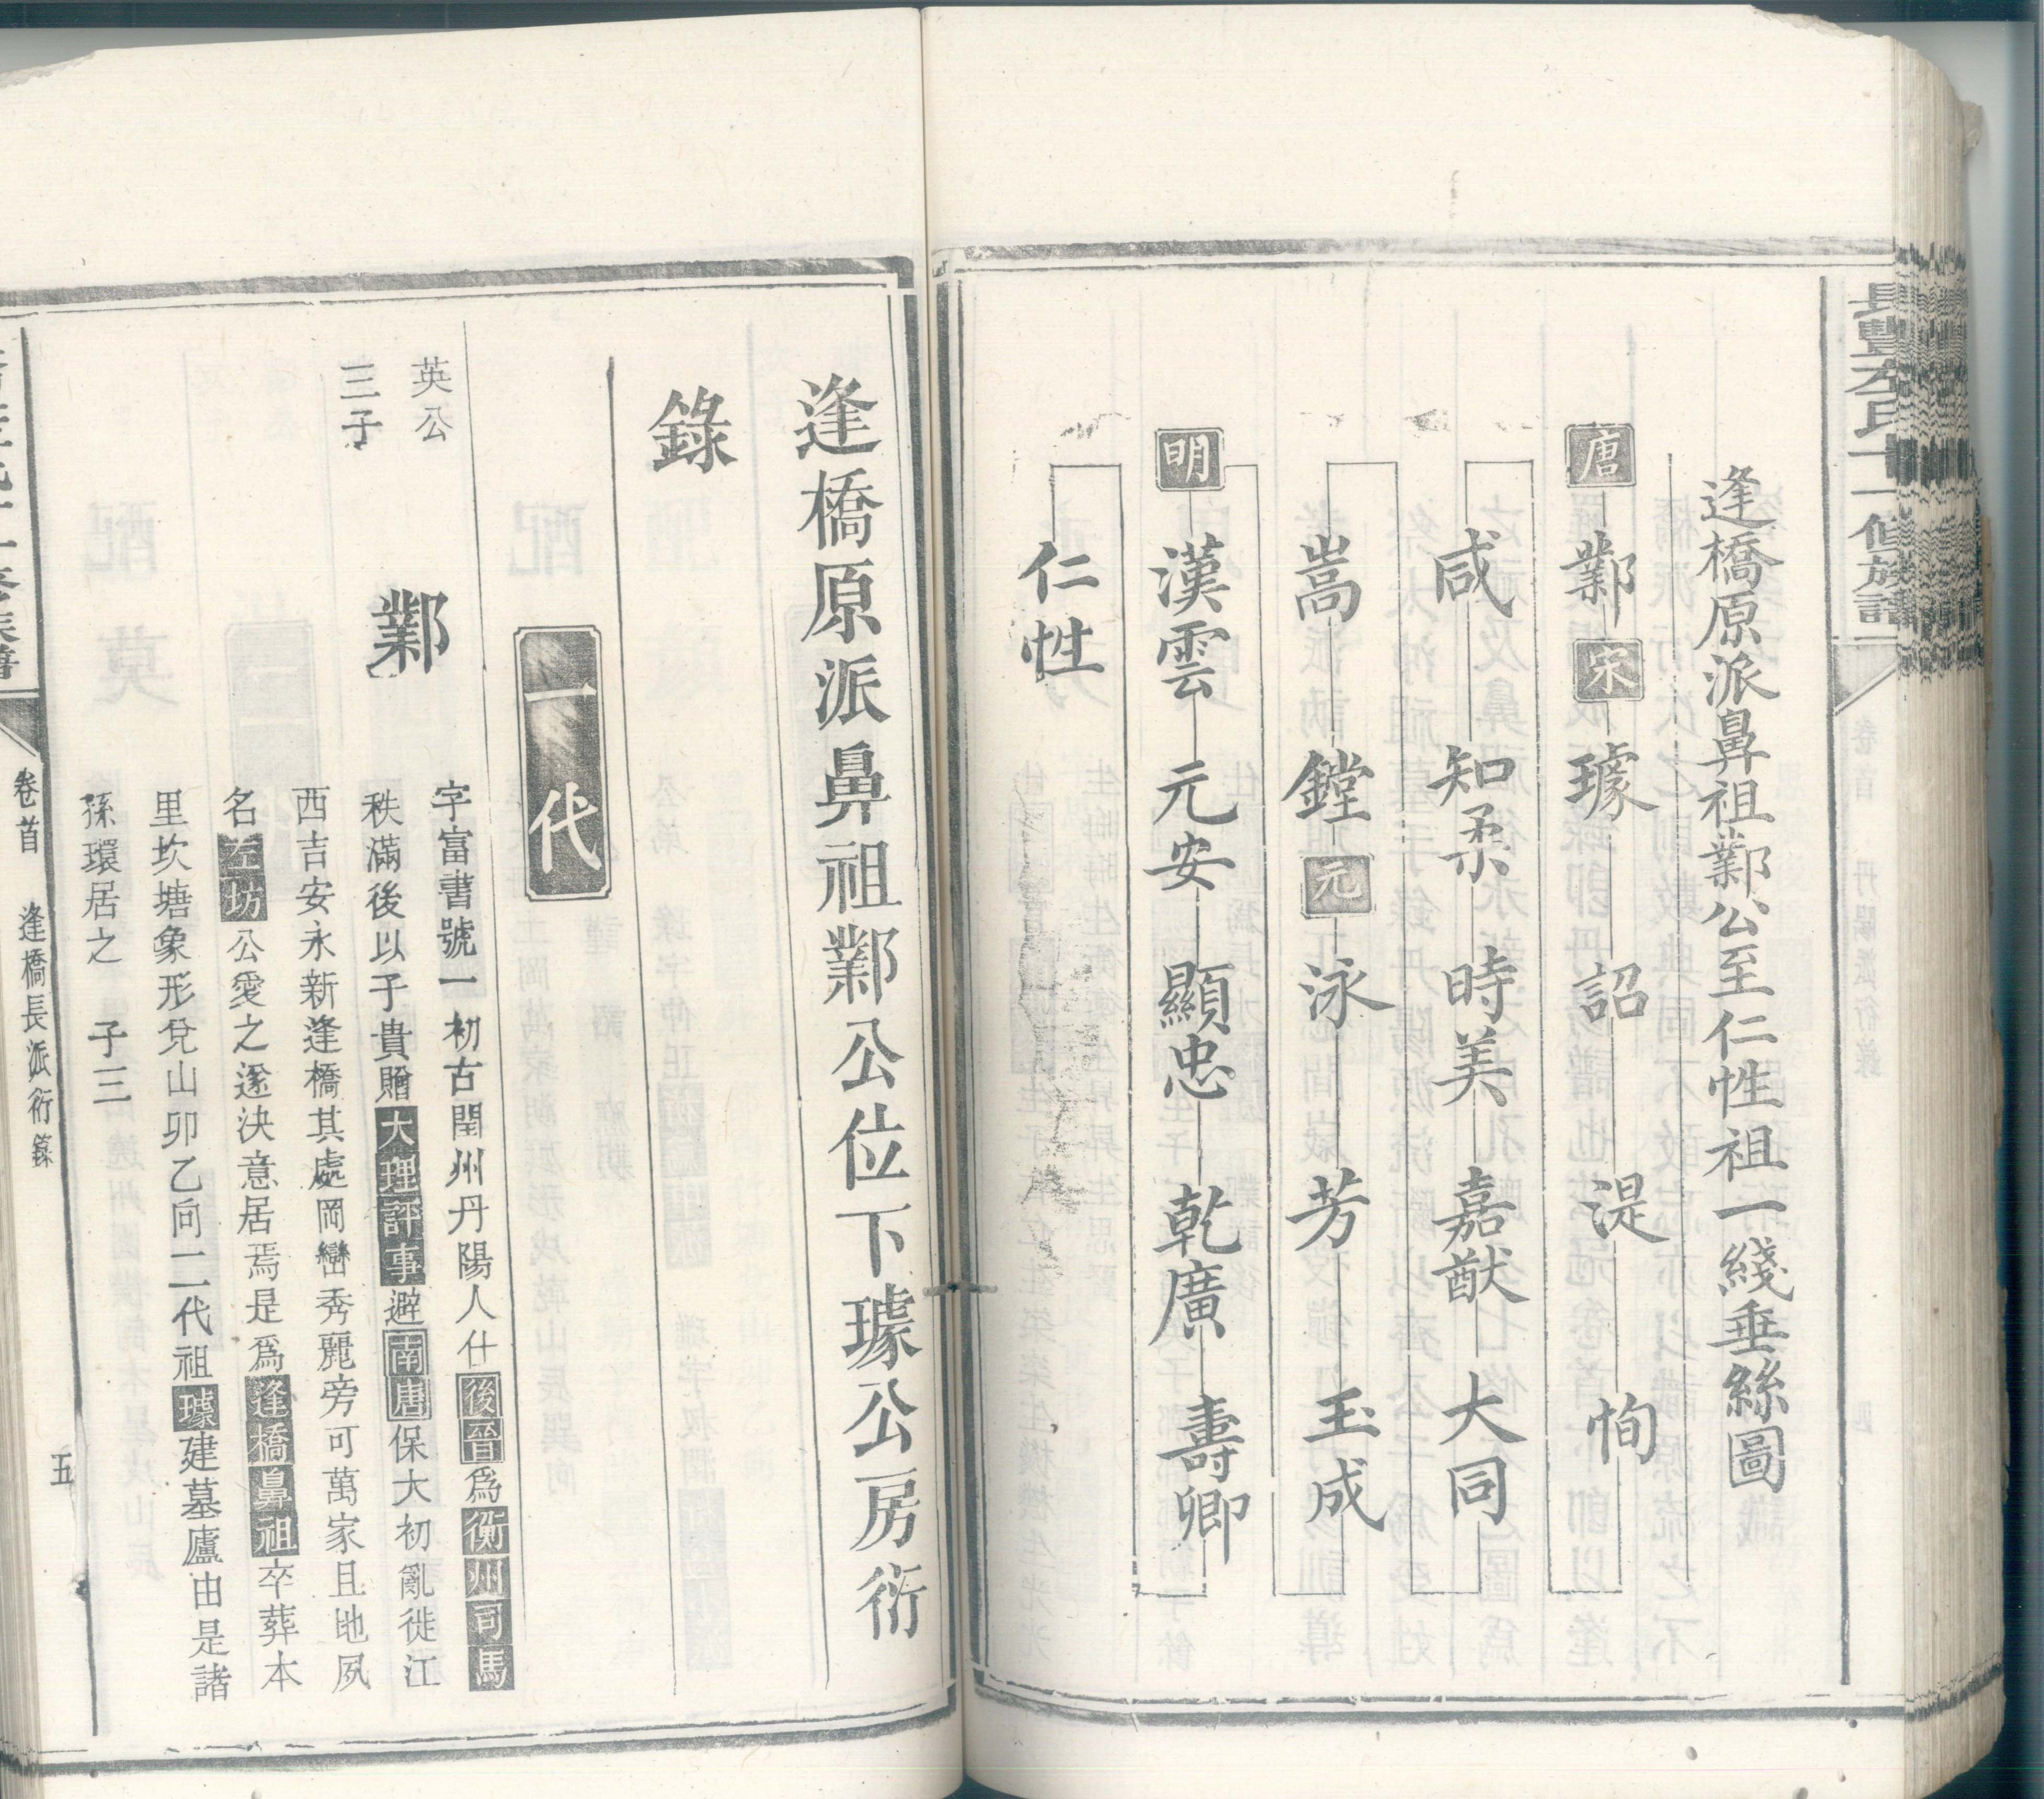 長豐左氏十一修族譜
逢橋原派鼻祖鄴公至仁性祖一綫垂絲圖
唐 鄴 宋 璩 詔 湜 恂
咸 知柔 時美 嘉猷 大同
嵩 鏜 元 泳 芳 玉成
明 漢雲 元安 顯忠 乾廣 壽卿
仁性
逢橋原派鼻祖鄴公位下璩公房衍
錄
一代
英公
三子
鄴
字富書號一初古閏州丹陽人仕後晉爲衡州司馬
秩滿後以子貴贈大理評事避南唐保大初亂徙江
西吉安永新逢橋其處岡巒秀麗旁可萬家且地夙
名左坊公愛之遂決意居焉是爲逢橋鼻祖卒葬本
里坎塘象形兌山卯乙向二代祖璩建墓廬由是諸
孫環居之 子三
卷首 逢橋長派衍錄
五